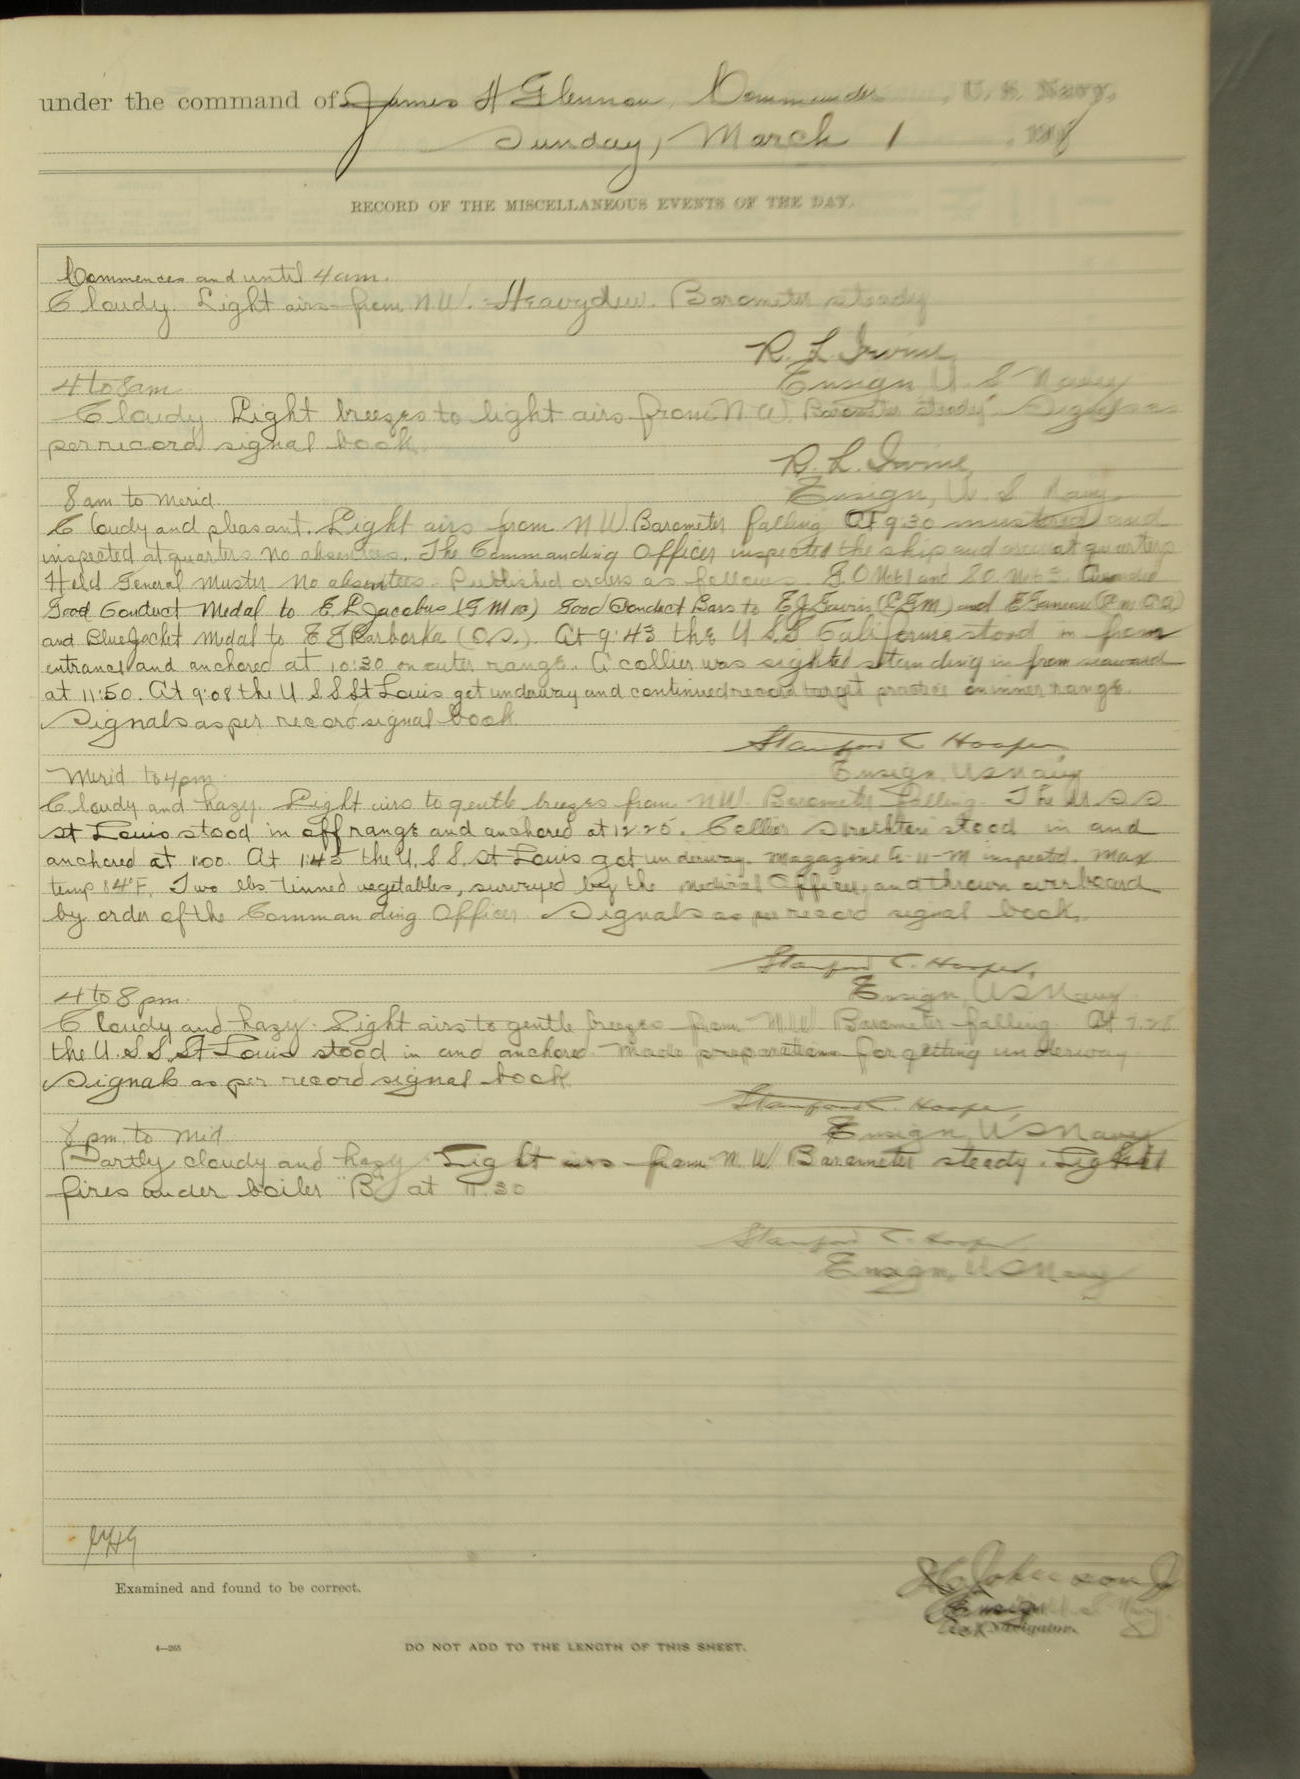 under the command of James H Glennon, Commander, U. S. Navy,
Sunday, March 1, 190
RECORD OF THE MISCELLANEOUS EVENTS OF THE DAY.
Commences and until 4 am.
Cloudy. Light airs from N.W. Heavy dew. Barometer steady
R. L. Irvine
Ensign U. S Navy
4 to 8 am
Cloudy Light breezes to light airs from N W. Barometer steady. Signals as
per record signal book.
R. L. Irvine,
Ensign, U. S Navy.
8 am to Merid.
Cloudy and pleasant. Light airs from N W. Barometer falling At 9 30 mustered and
inspected at quarters no absentees. The Commanding Officer inspected the ship and crew at quarters
Held General Muster No absentees. Published orders as follows. G.O No 61 and S.O. No Awarded
Good Conduct Medal to E L Jacobus (G M ) Good Conduct Bars to E J (C G M) and
and BlueJacket Medal to E T Karborka (O.S.). At 9:43 the U.S.S California stood in from
entrance and anchored at 10:30 on outer range. A collier was sighted standing in from seaward
at 11:50. At 9:08 the U S S St Louis got underway and continued record target practice on inner range.
Signals as per record signal book
Stanford C Hooper,
Ensign, U S Navy
Merid to 4 pm.
Cloudy and hazy. Light airs to gentle breezes from NW. Barometer falling. The U S S
St Louis stood in off range and anchored at 12 25. Collier stood in and
anchored at 1:00. At 1:45 the U.S.S. St Louis got underway. Magazine 6-11-M inspected. Max
temp 84°F. Two lbs tinned vegetables, surveyed by the medical Officer, and thrown overboard
by order of the Commanding Officer. Signals as per record signal book.
Stanford C. Hooper,
Ensign, U S Navy
4 to 8 pm.
Cloudy and hazy. Light airs to gentle breezes from N.W Barometer falling. At 7.28
the U.S.S. St Louis stood in and anchored. Made preparations for getting underway
Signals as per record signal book
Stanford C. Hooper,
Ensign, U S Navy
8 pm. to Mid
Partly cloudy and hazy Light airs from N. W. Barometer steady. Lighted
fires under boiler "B" at 11.30
Stanford C. Hooper
Ensign, U S Navy
JHG
Examined and found to be correct.
Ensign U. S. Navy.
Navigator.
4—265
DO NOT ADD TO THE LENGTH OF THIS SHEET.